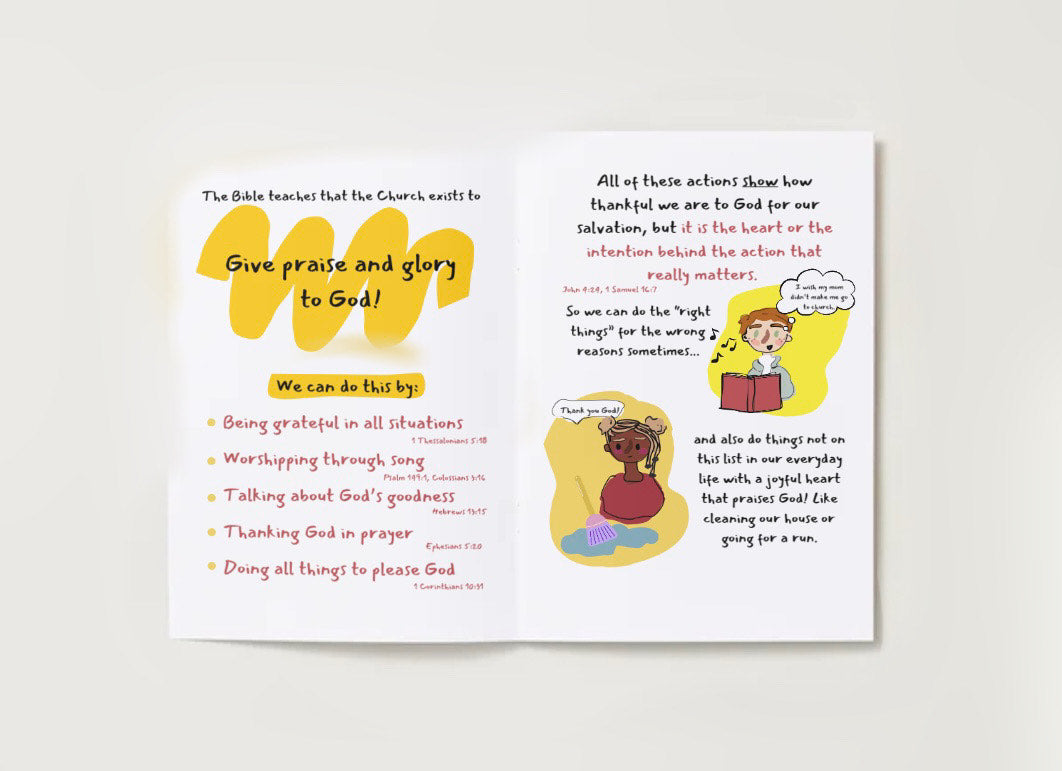 The Bible teaches that the Church exists to
Give praise and glory
to God!
We can do this by:
Being grateful in all situations
1 Thessalonians 5:18
Worshipping through song
Psalm 149:1, Colossians 3:16
Talking about God's goodness
Hebrews 13:15
Thanking God in prayer
Ephesians 5:20
Doing all things to please God
1 Corinthians 10:31
All of these actions show how
thankful we are to God for our
salvation, but it is the heart or the
intention behind the action that
really matters.
John 4:24, 1 Samuel 16:7
So we can do the "right
things" for the wrong
reasons sometimes...
I wish my mom
didn't make me go
to church.
Thank you God!
and also do things not on
this list in our everyday
life with a joyful heart
that praises God! Like
cleaning our house or
going for a run.